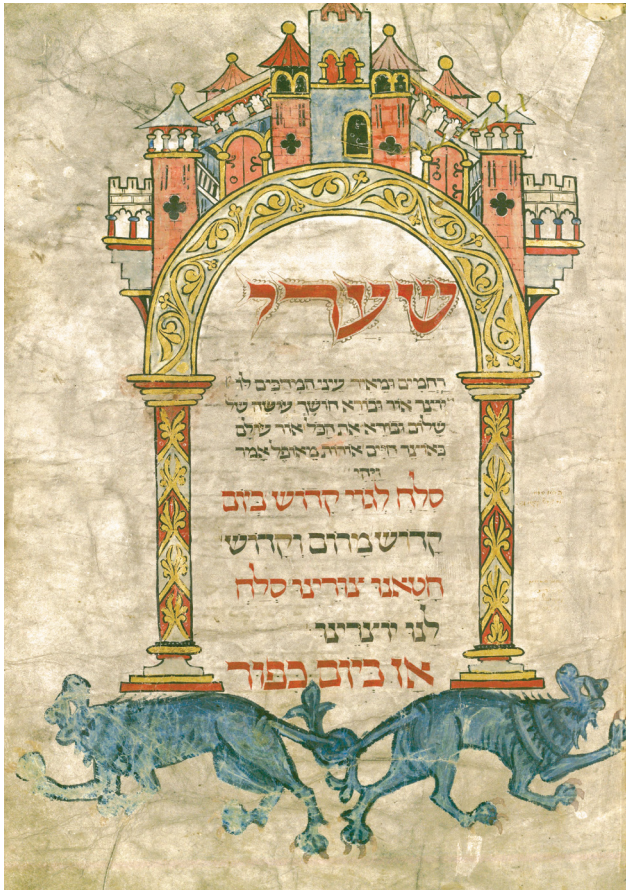 שערי
רחמים ומאיר עיני המחכים לו
יוצר אור ובורא חושך עושה של
שלום ובורא את הכל אור עולם
באוצר חיים אורות מאופל אמר
ויהי
סלח לגוי קדוש ביום
קדוש מרום וקדוש
חטאנו צורינו סלח
לנו יוצרינו
אז ביום כפור